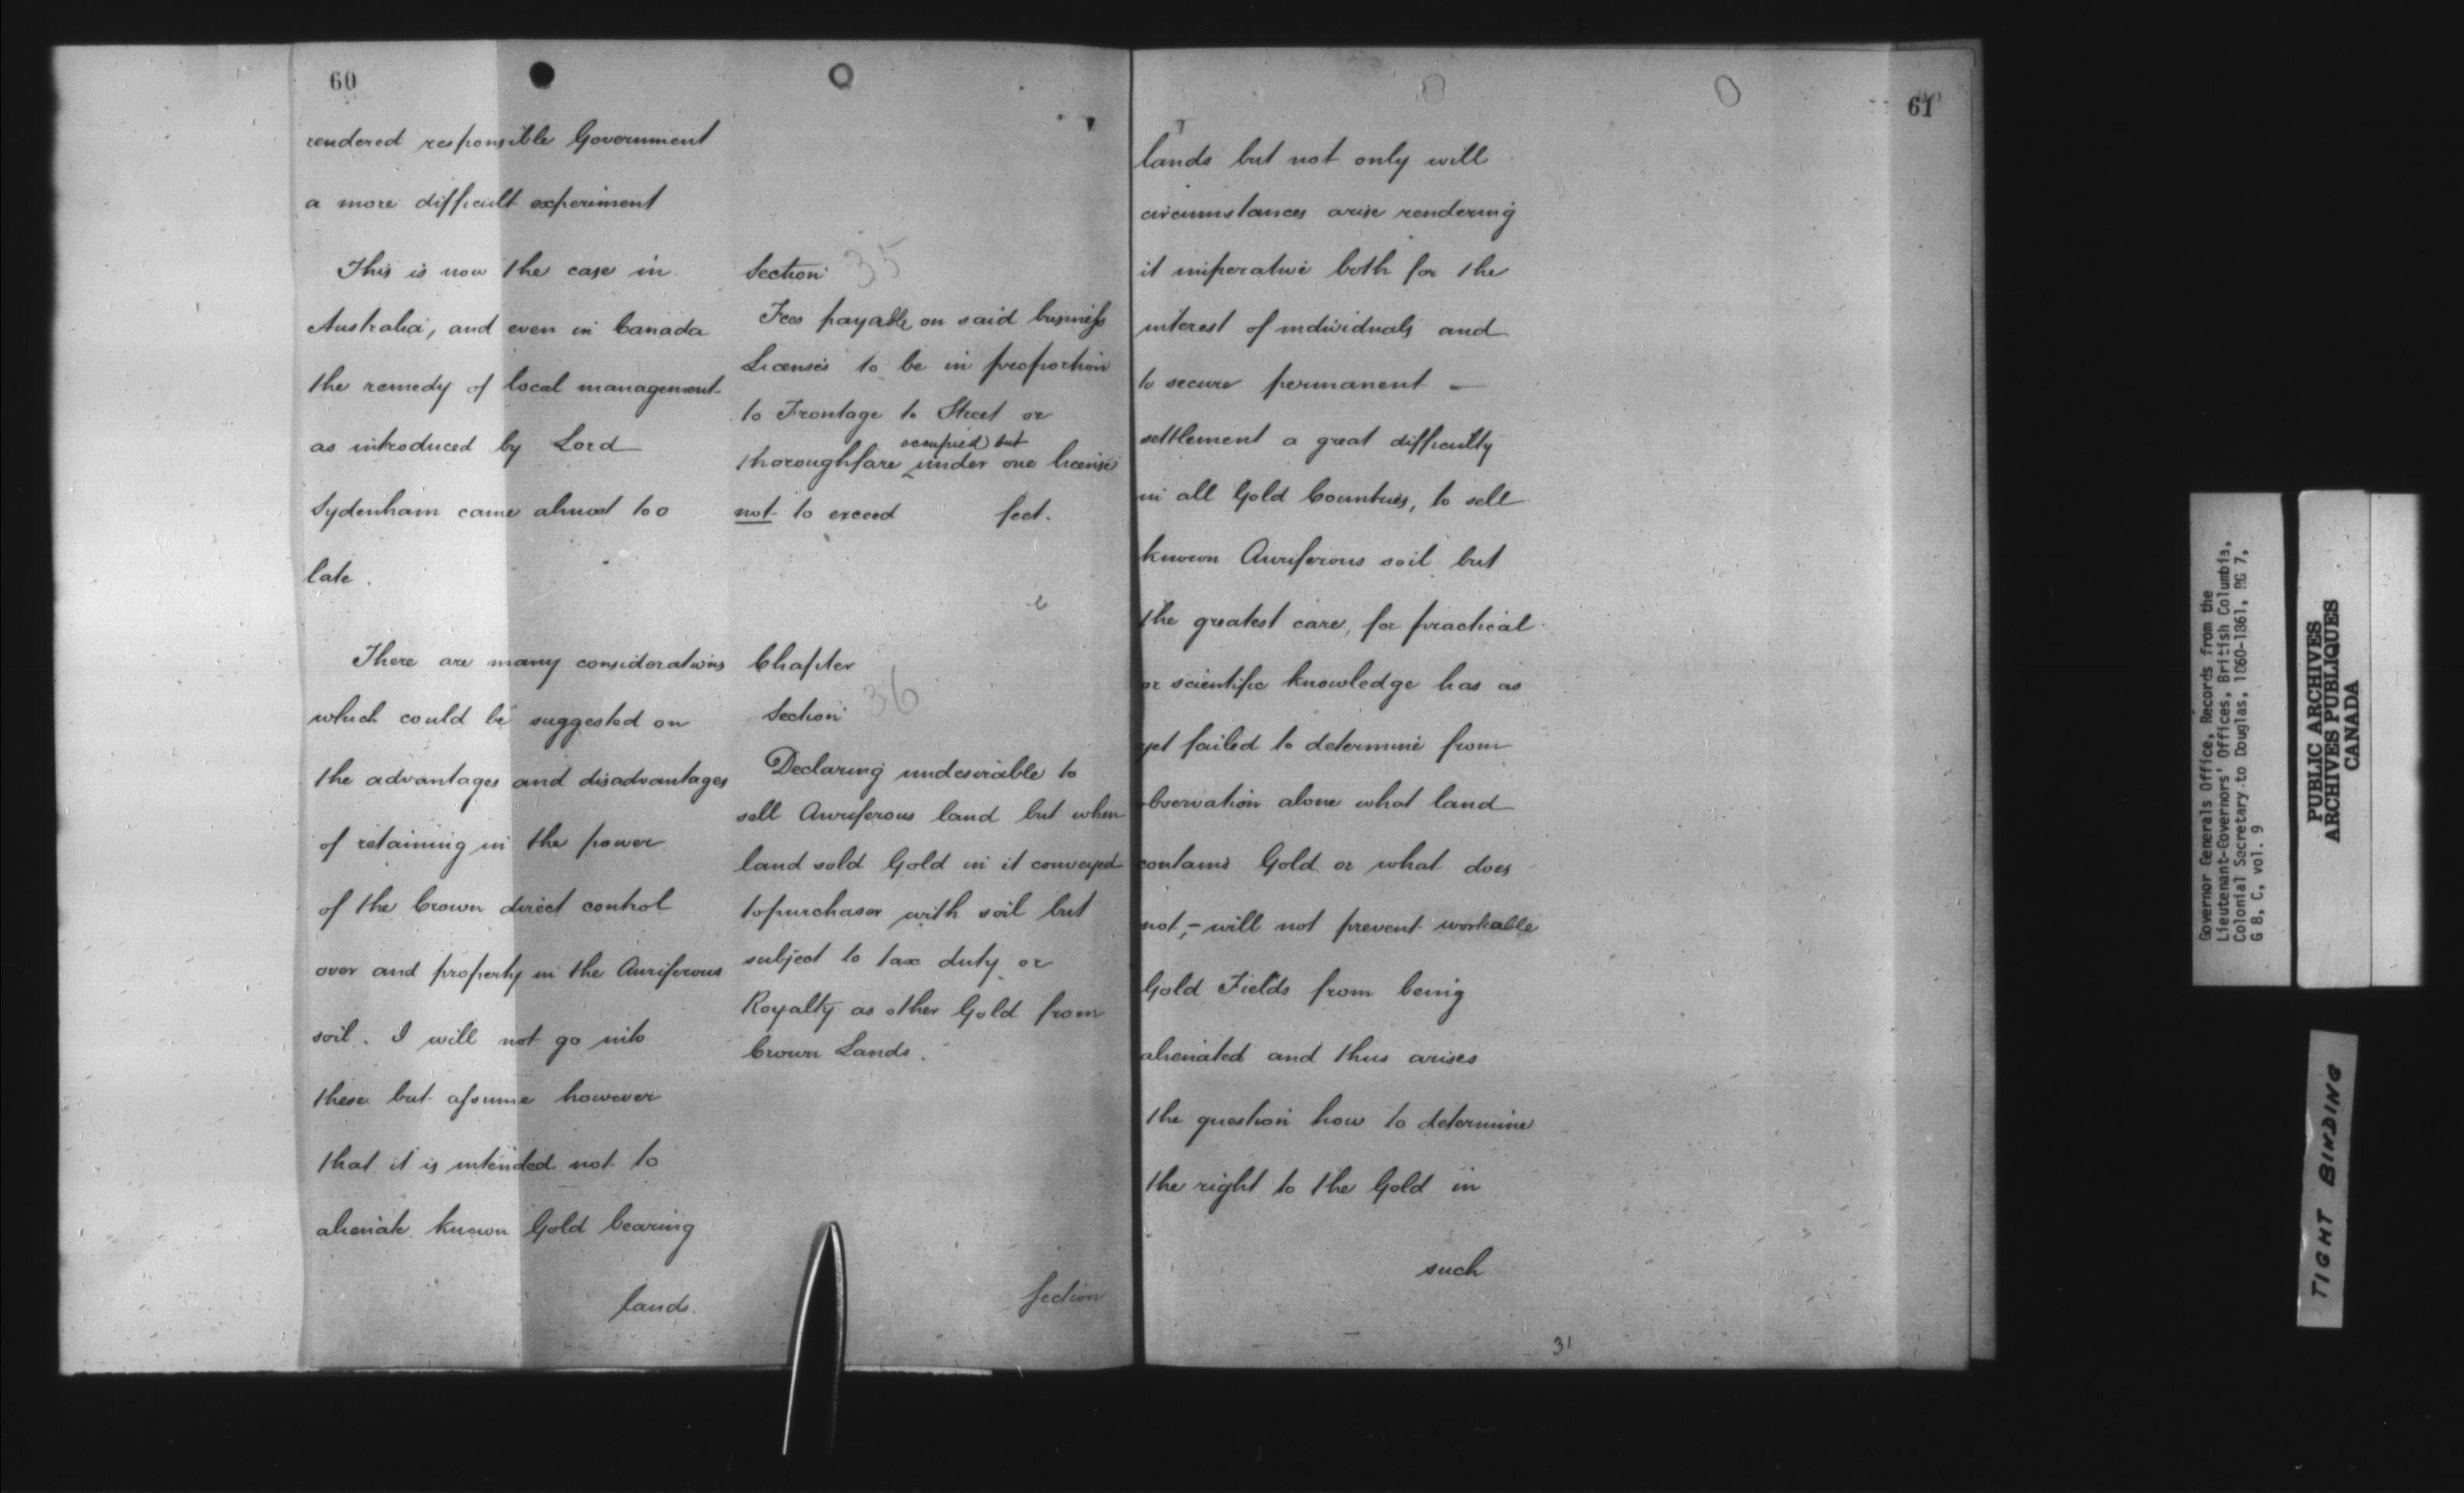 60
rendered responsible Government
a more difficult experiment
This is now the case in
Australia, and even in Canada
the remedy of local management
as introduced by Lord
Sydenham came almost too
late.
There are many considerations
which could be suggested on
the advantages and disadvantages
of retaining in the power
of the Crown direct control
over and property in the Auriferous
soil. I will not go into
these but assume however
that it is intended not to
alienate known Gold bearing
lands.
Section 35
Fees payable on said business
Licenses to be in proportion
to Frontage to Street or
occupied but
thoroughfare ‸ under one license
not to exceed feet.
Chapter
Section 36
Declaring undesirable to
sell Auriferous land but when
land sold Gold in it conveyed
to purchaser with soil but
subject to tax duty or
Royalty as other Gold from
Crown Lands.
Section
61
lands but not only will
circumstances arise rendering
it imperative both for the
interest of individuals and
to secure permanent -
settlement a great difficulty
in all Gold Countries, to sell
known Auriferous soil but
the greatest care, for practical
or scientific knowledge has as
yet failed to determine from
observation alone what land
contains Gold or what does
not, - will not prevent workable
Gold Fields from being
alienated and thus arises
the question how to determine
the right to the Gold in
such
31
Governor Generals Office, Records from the
Lieutenant-Governors' Offices, British Columbia,
Colonial Secretary to Douglas, 1860-1861, RG 7,
G 8, C, vol. 9
PUBLIC ARCHIVES
ARCHIVES PUBLIQUES
CANADA
TIGHT BINDING